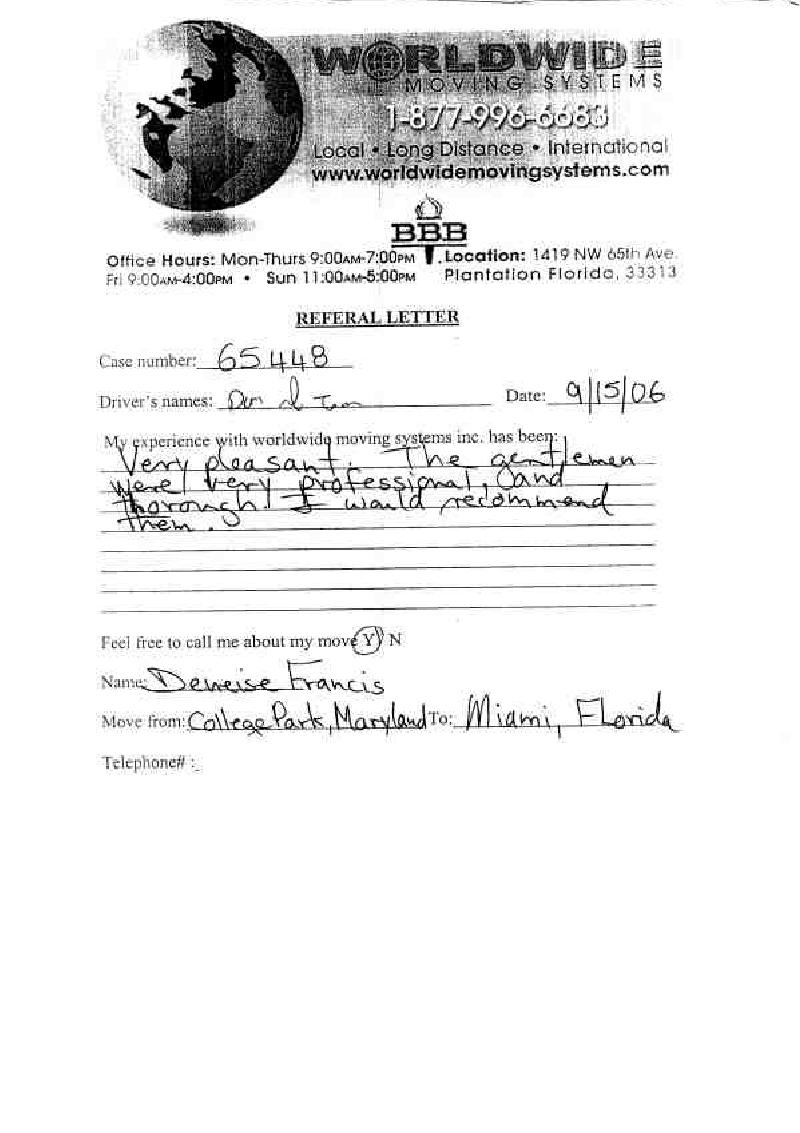 WORLDWIDE
MOVING SYSTEMS
1-877-996-6683
Local • Long Distance • International
www.worldwidemovingsystems.com
BBB
Office Hours: Mon-Thurs 9:00AM-7:00PM
Fri 9:00AM-4:00PM • Sun 11:00AM-5:00PM
Location: 1419 NW 65th Ave.
Plantation Florida, 33313
REFERAL LETTER
Case number: 65448
Driver's names:
Date: 9/15/06
My experience with worldwide moving systems inc. has been:
Very pleasant. The gentlemen
were very professional, and
thorough. I would recommend
them.
Feel free to call me about my move Y N
Name: Deneise Francis
Move from: College Park, Maryland To: Miami, Florida
Telephone# :